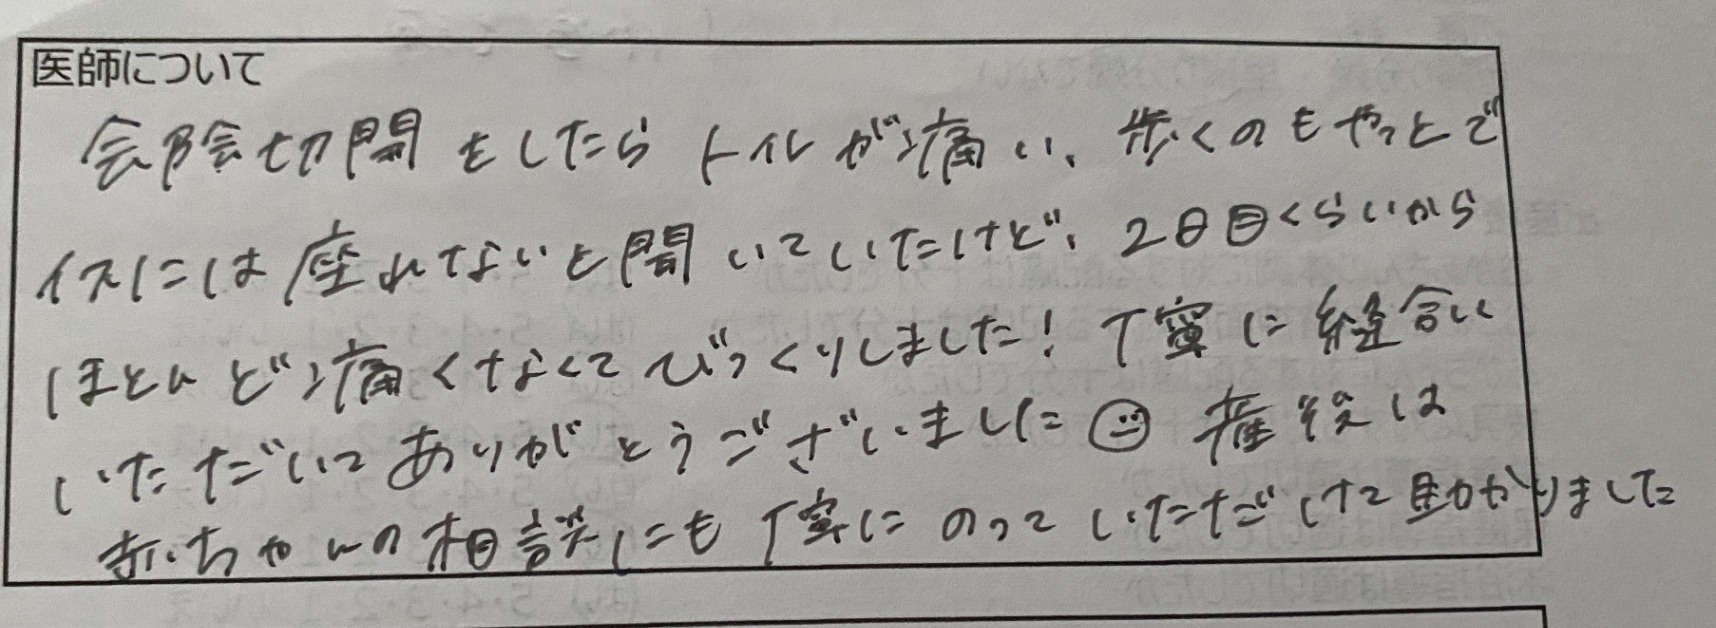 医師について
会陰切開をしたらトイレが痛い、歩くのもやっとで
イスには座れないと聞いていたけど、2日目くらいから
ほとんど痛くなくてびっくりしました！丁寧に縫合い
いただいてありがとうございました 産後は
赤ちゃんの相談にも丁寧にのっていただけて助かりました